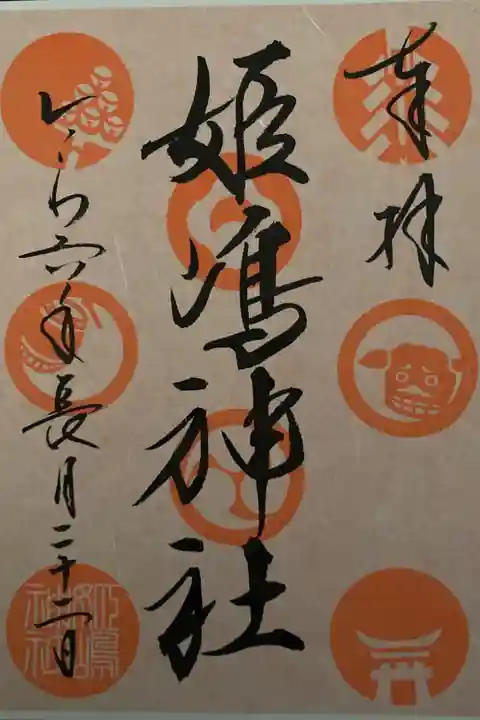 奉拝
姫嶋神社
れいわ六年長月二十二日
姫嶋
神社